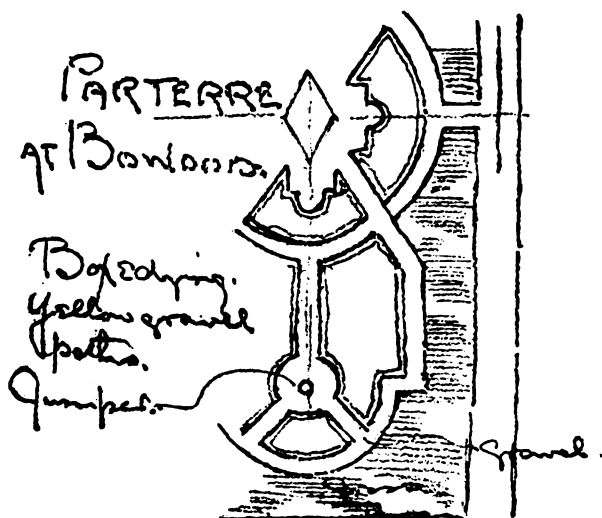 PARTERRE
AT BOWOOD.
Box Edging.
Yellow gravel
paths.
Juniper.
gravel.